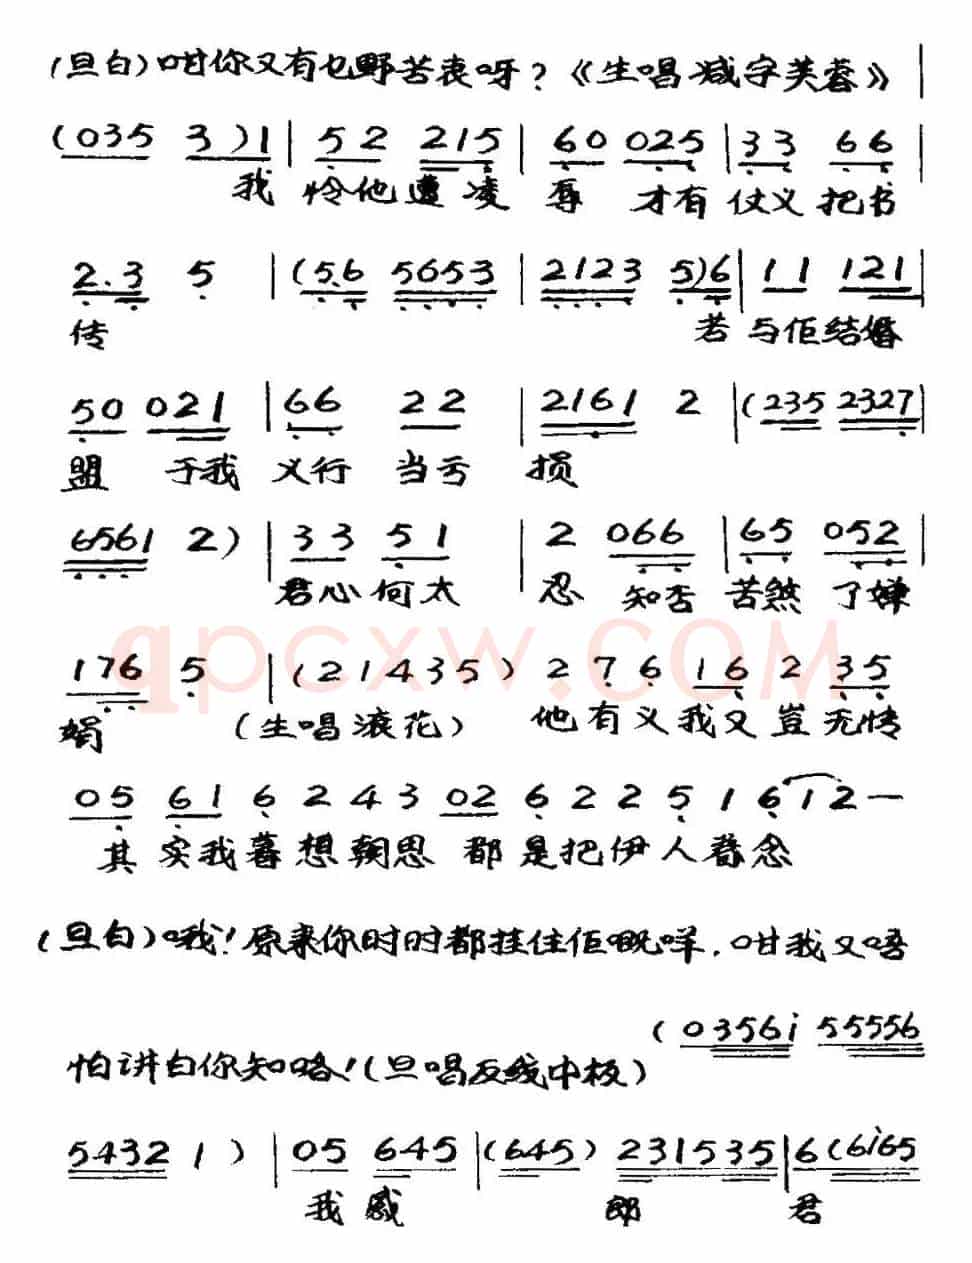 (旦白)咁你又有乜野苦衷呀?《生唱减字芙蓉》
(035 3)1 | 52 215 | 60 025 | 33 66 |
我 怜他遭凌 辱 才有仗义把书
2.3 5 | (5.6 5653 | 2123 5)6 | 11 121 |
传 若与佢结婚
50 021 | 66 22 | 2161 2 | (235 2327 |
盟 于我 义行 当亏 损
6561 2) | 33 51 | 2 066 | 65 052 |
君心何太 忍 知否 苦煞 了婵
qpcxw.com
176 5 | (21435) 2 7 6 16 2 35
娟 (生唱滚花) 他有义我又豈无情
05 61 6 2 4 3 02 6 2 2 5 1 6 1 2 —
其实我暮想朝思 都是把伊人眷念
(旦白)哦!原来你时时都挂住佢嘅咩.咁我又唔
(0356i 55556
怕讲白你知咯!(旦唱反线中板)
5432 1) | 05 645 | (645) 231535 | 6(6i65
我感 郎 君